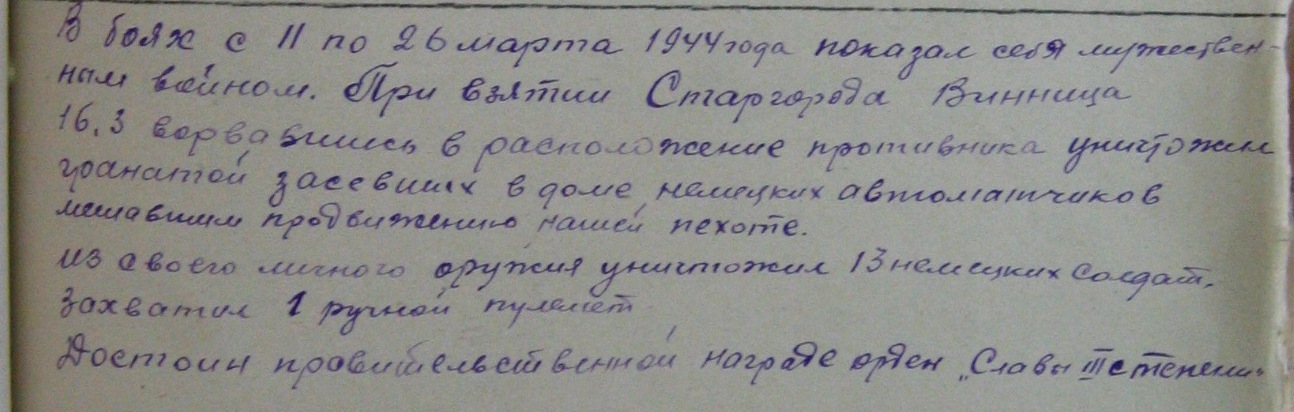 В боях с 11 по 26 марта 1944 года показал себя мужествен-
ным войном. При взятии Старгорода Винница
16.3 ворвавшись в расположение противника уничтожил
гранатой засевших в доме немецких автоматчиков
мешавшим продвижению нашей пехоте.
из своего личного оружия уничтожил 13 немецких солдат.
захватил 1 ручной пулемет
Достоин правительственной награде орден „Славы III степени"